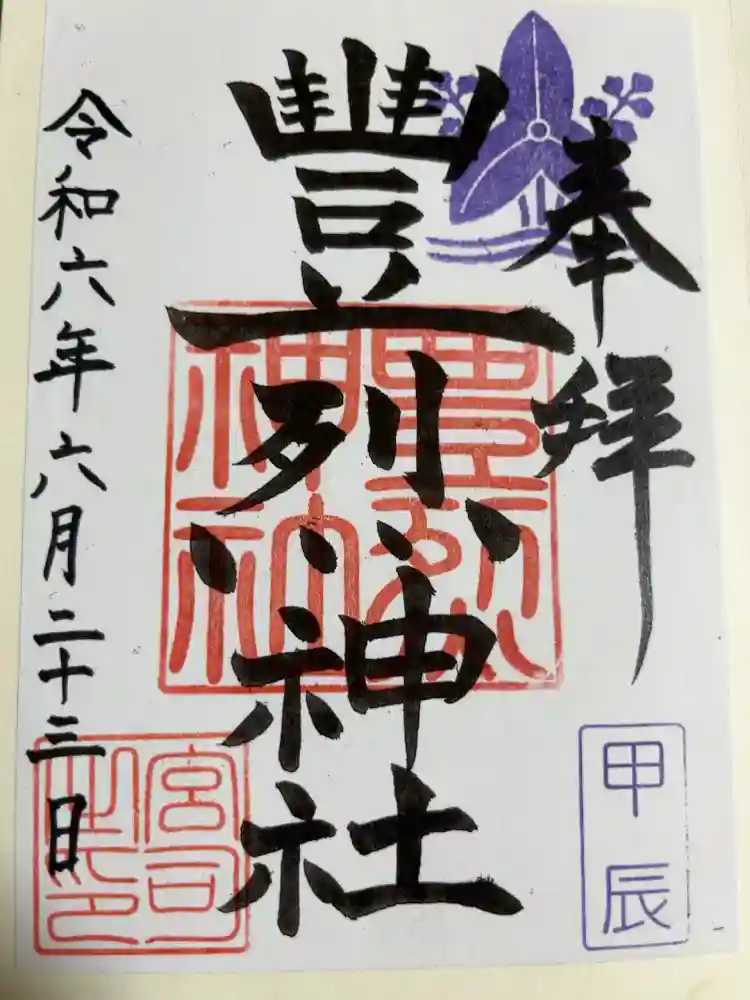 奉拝
豐烈神社
豊烈
神社
令和六年六月二十三日
甲辰
宮司
之印